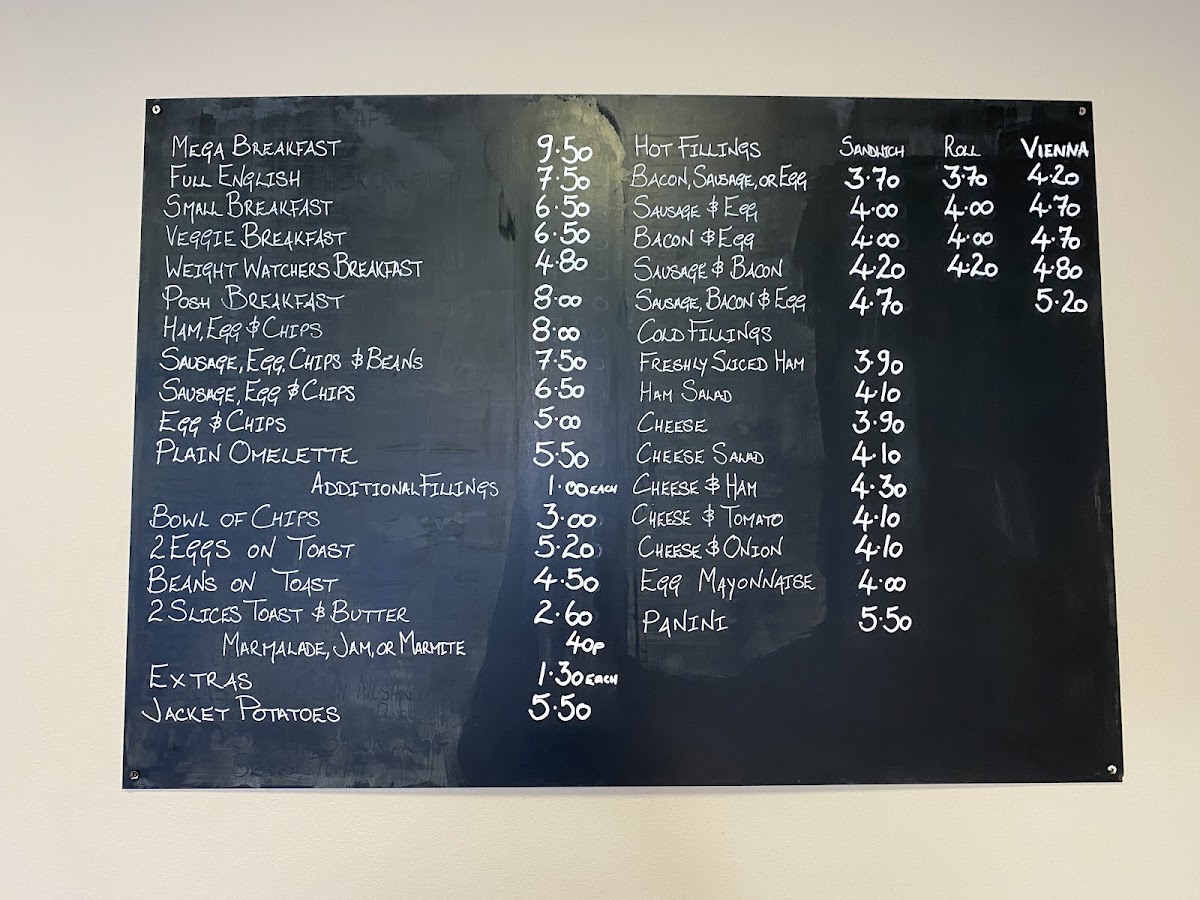 Mega Breakfast 9.50
Full English 7.50
Small Breakfast 6.50
Veggie Breakfast 6.50
Weight Watchers Breakfast 4.80
Posh Breakfast 8.00
Ham, Egg & Chips 8.00
Sausage, Egg, Chips & Beans 7.50
Sausage, Egg & Chips 6.50
Egg & Chips 5.00
Plain Omelette 5.50
Additional Fillings 1.00 each
Bowl of Chips 3.00
2 Eggs on Toast 5.20
Beans on Toast 4.50
2 Slices Toast & Butter 2.60
Marmalade, Jam, or Marmite 40p
Extras 1.30 each
Jacket Potatoes 5.50
Hot Fillings Sandwich Roll Vienna
Bacon, Sausage, or Egg 3.70 3.70 4.20
Sausage & Egg 4.00 4.00 4.70
Bacon & Egg 4.00 4.00 4.70
Sausage & Bacon 4.20 4.20 4.80
Sausage, Bacon & Egg 4.70 5.20
Cold Fillings
Freshly Sliced Ham 3.90
Ham Salad 4.10
Cheese 3.90
Cheese Salad 4.10
Cheese & Ham 4.30
Cheese & Tomato 4.10
Cheese & Onion 4.10
Egg Mayonnaise 4.00
Panini 5.50